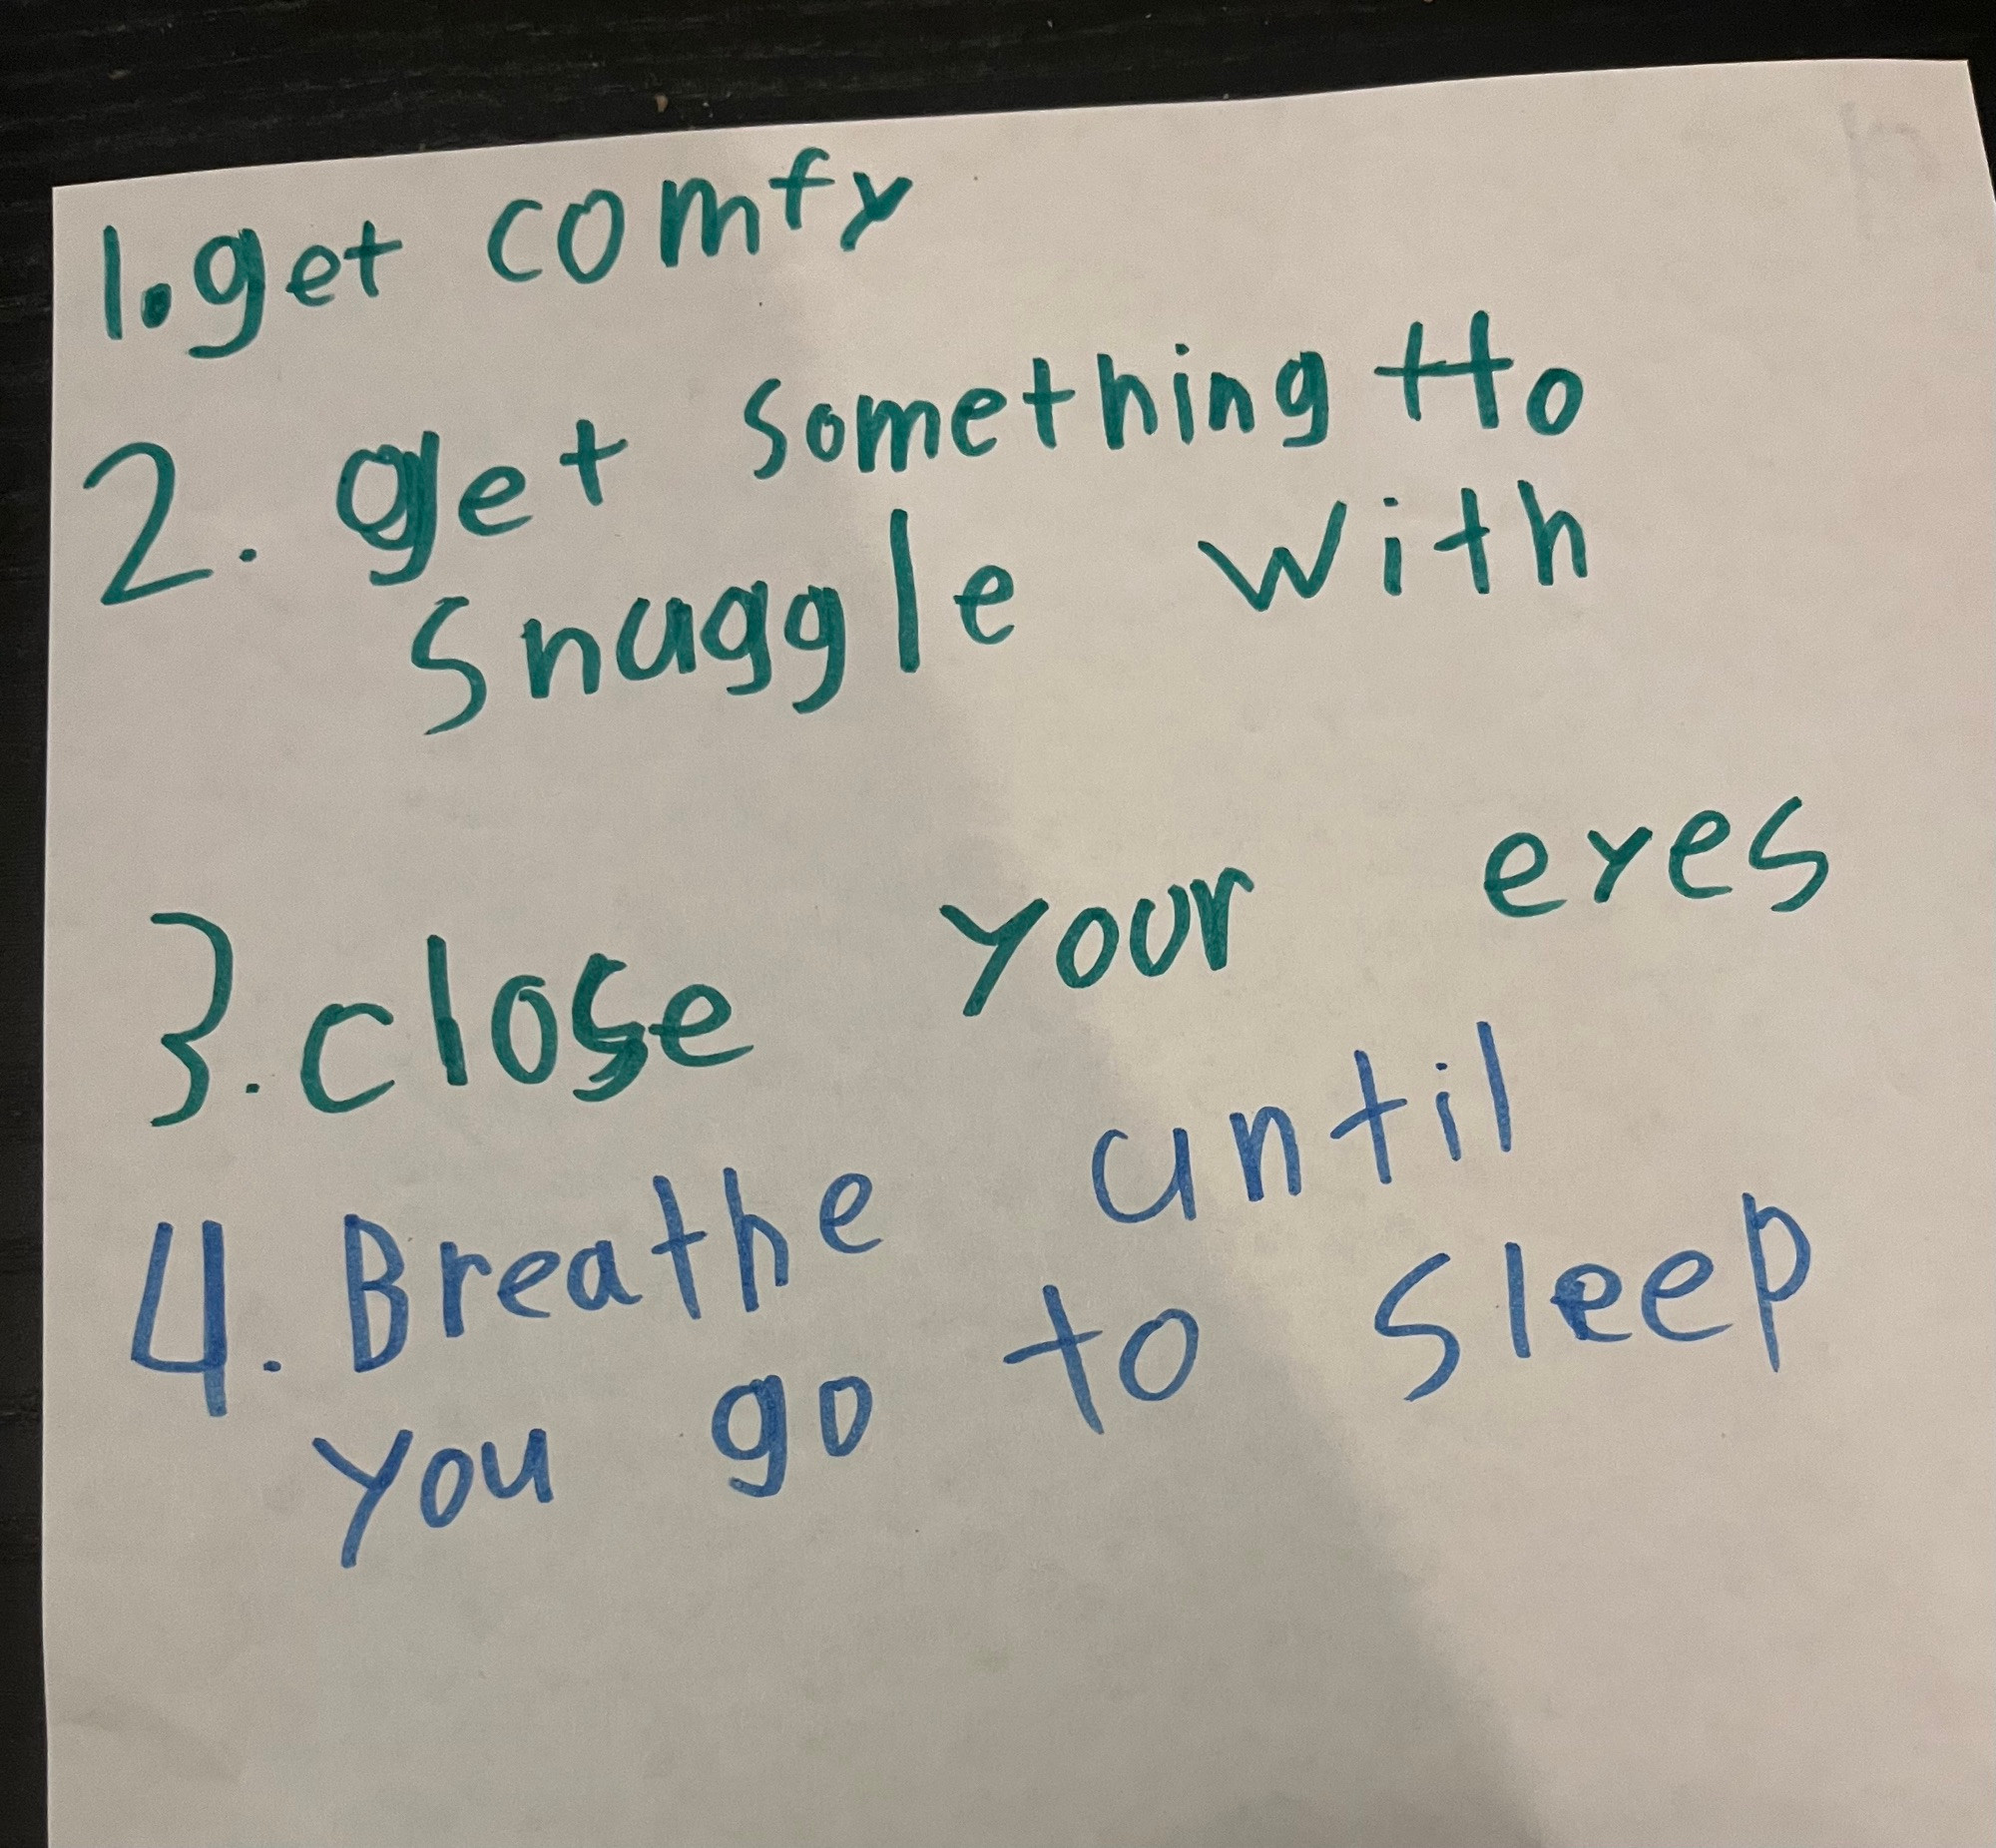 1. get comfy
2. get something tto
snuggle with
3. close your eyes
4. Breathe until
you go to sleep